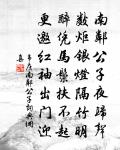 南鄰公子夜歸聲
數炬銀燈隔竹明
醉凭馬鬃扶不起
更邀紅袖出門迎
韋莊南鄰公子詩